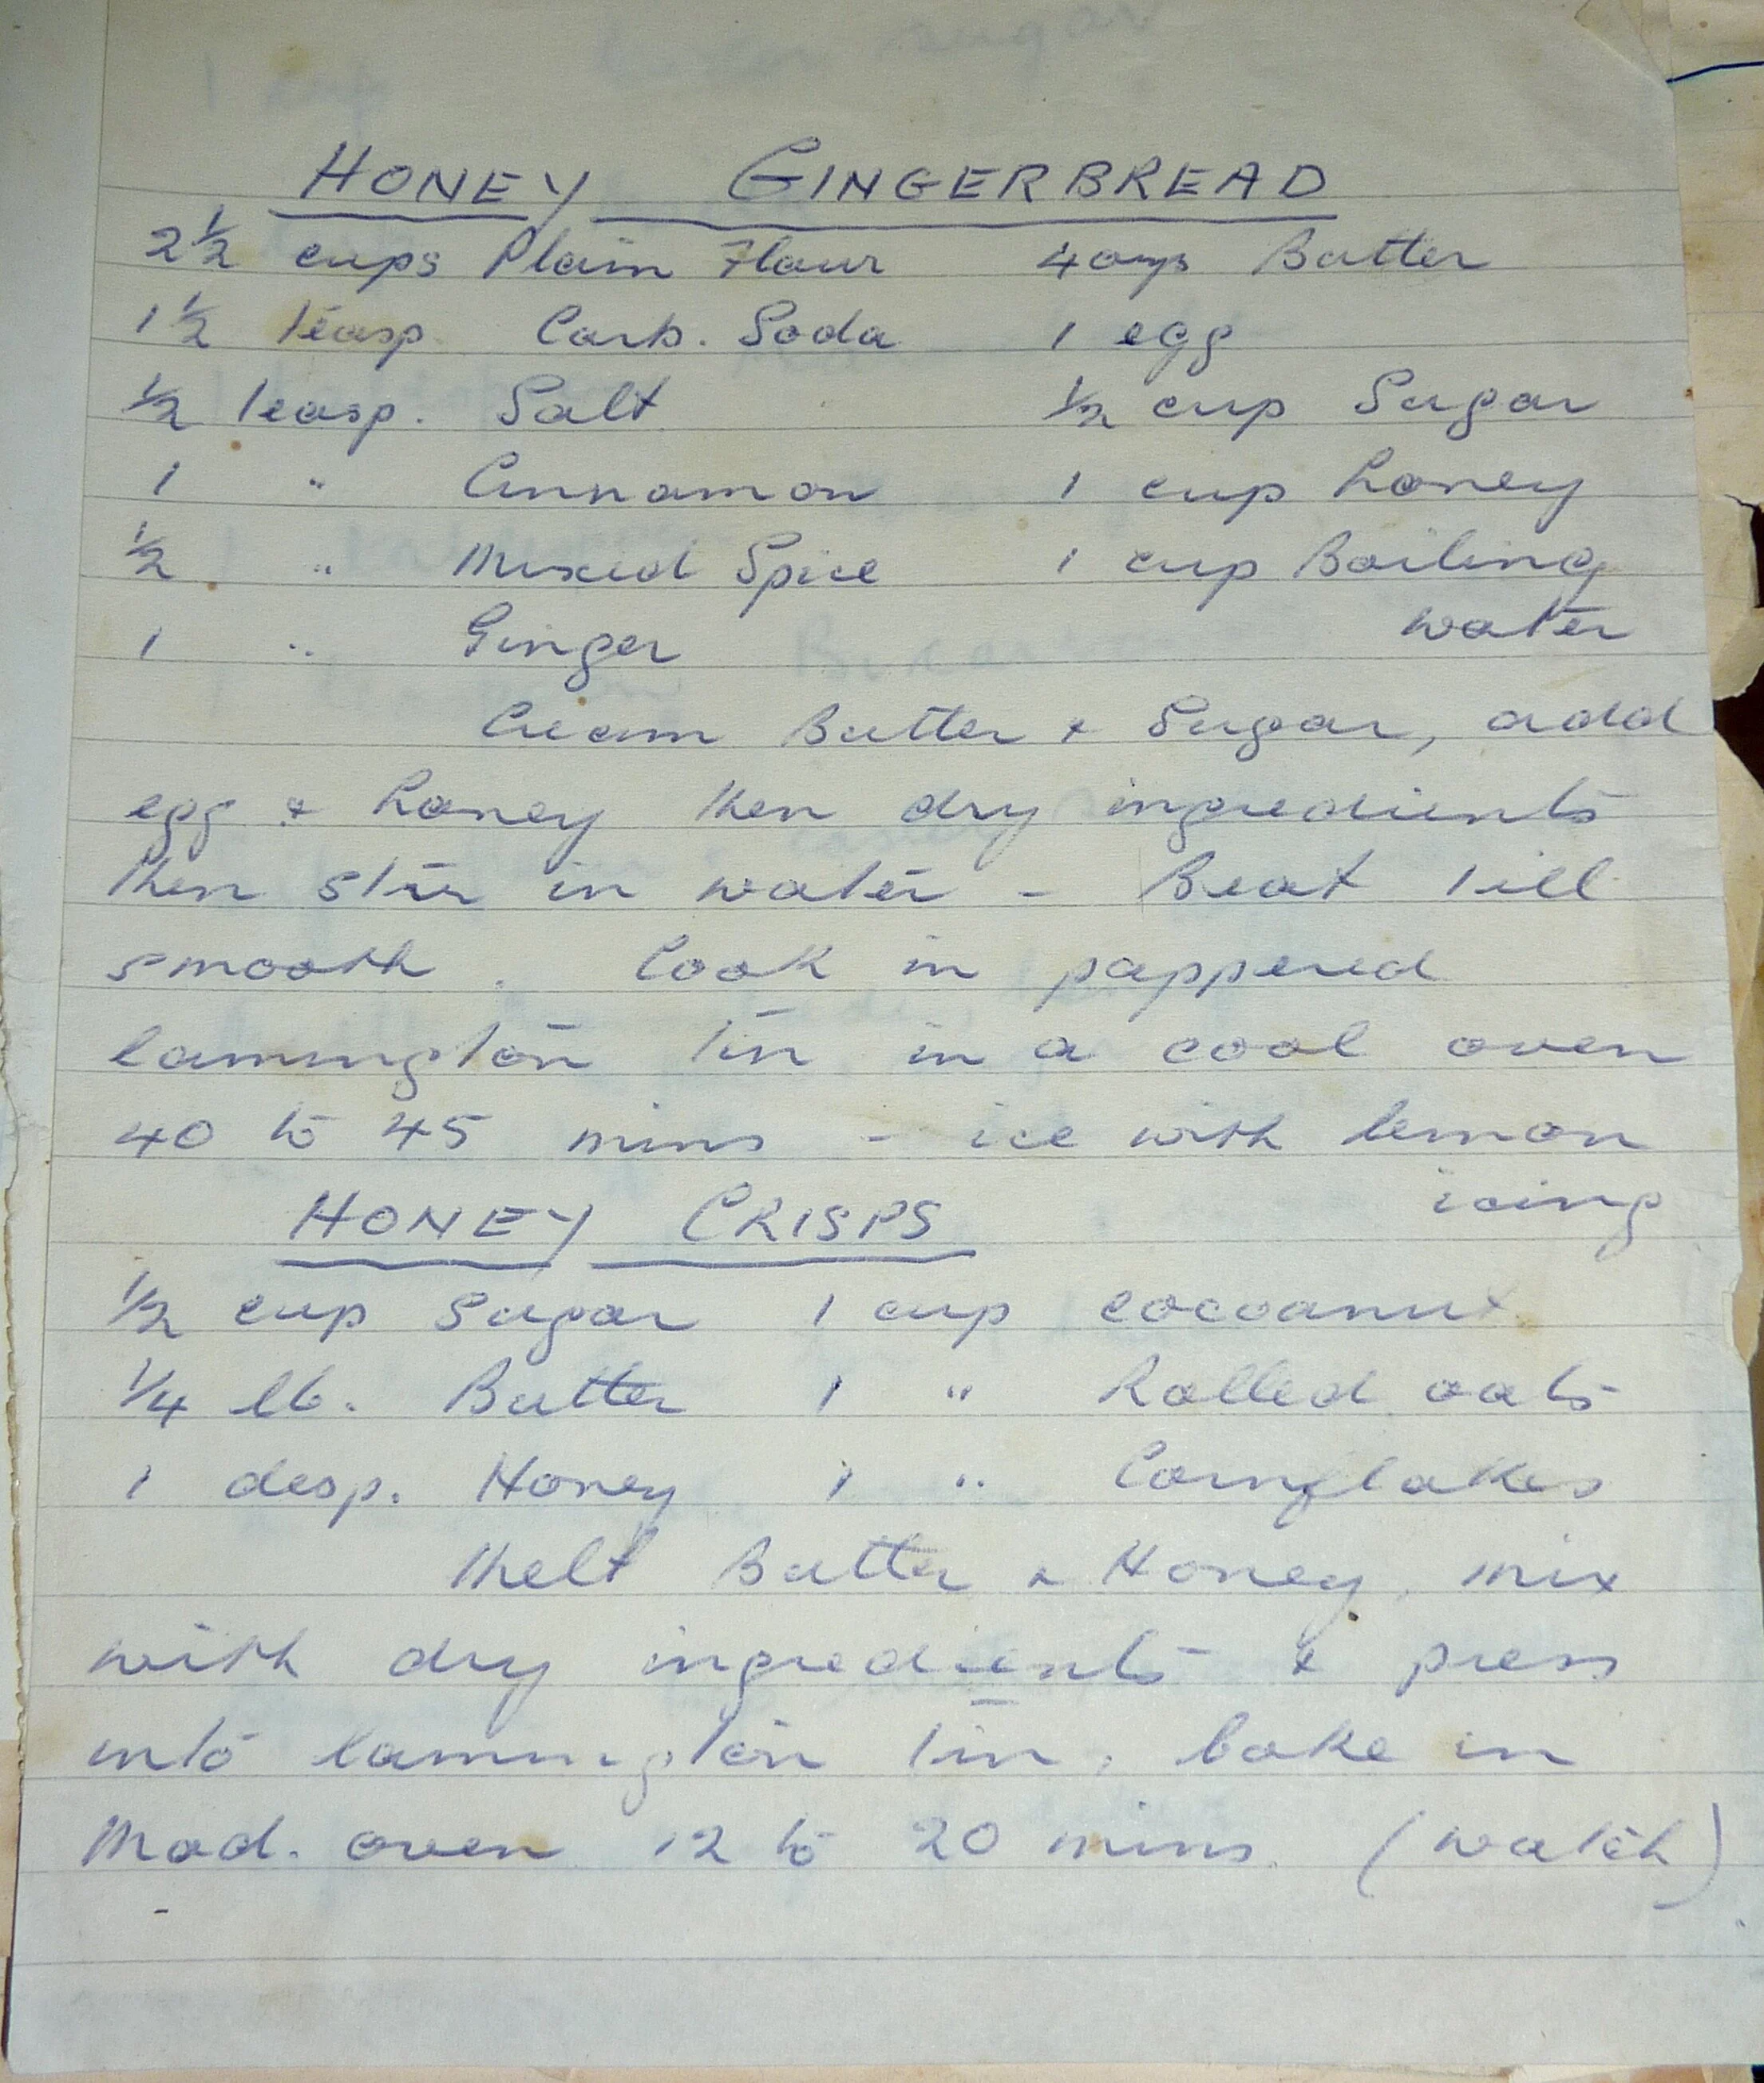 HONEY GINGERBREAD
2½ cups Plain Flour 4 ozs Butter
1½ teasp. Carb. Soda 1 egg
½ teasp. Salt ½ cup Sugar
1 " Cinnamon 1 cup honey
½ " Mixed Spice 1 cup Boiling
1 " Ginger water
Cream Butter & Sugar, add
egg & honey then dry ingredients
then stir in water - Beat till
smooth. Cook in pappered
lammington tin in a cool oven
40 to 45 mins - ice with lemon
icing
HONEY CRISPS
½ cup Sugar 1 cup cocoanut
¼ lb. Butter 1 " Rolled oats
1 desp. Honey 1 " Cornflakes
Melt Butter & Honey, mix
with dry ingredients & press
into lammington tin, bake in
Mod. oven 12 to 20 mins. (watch)